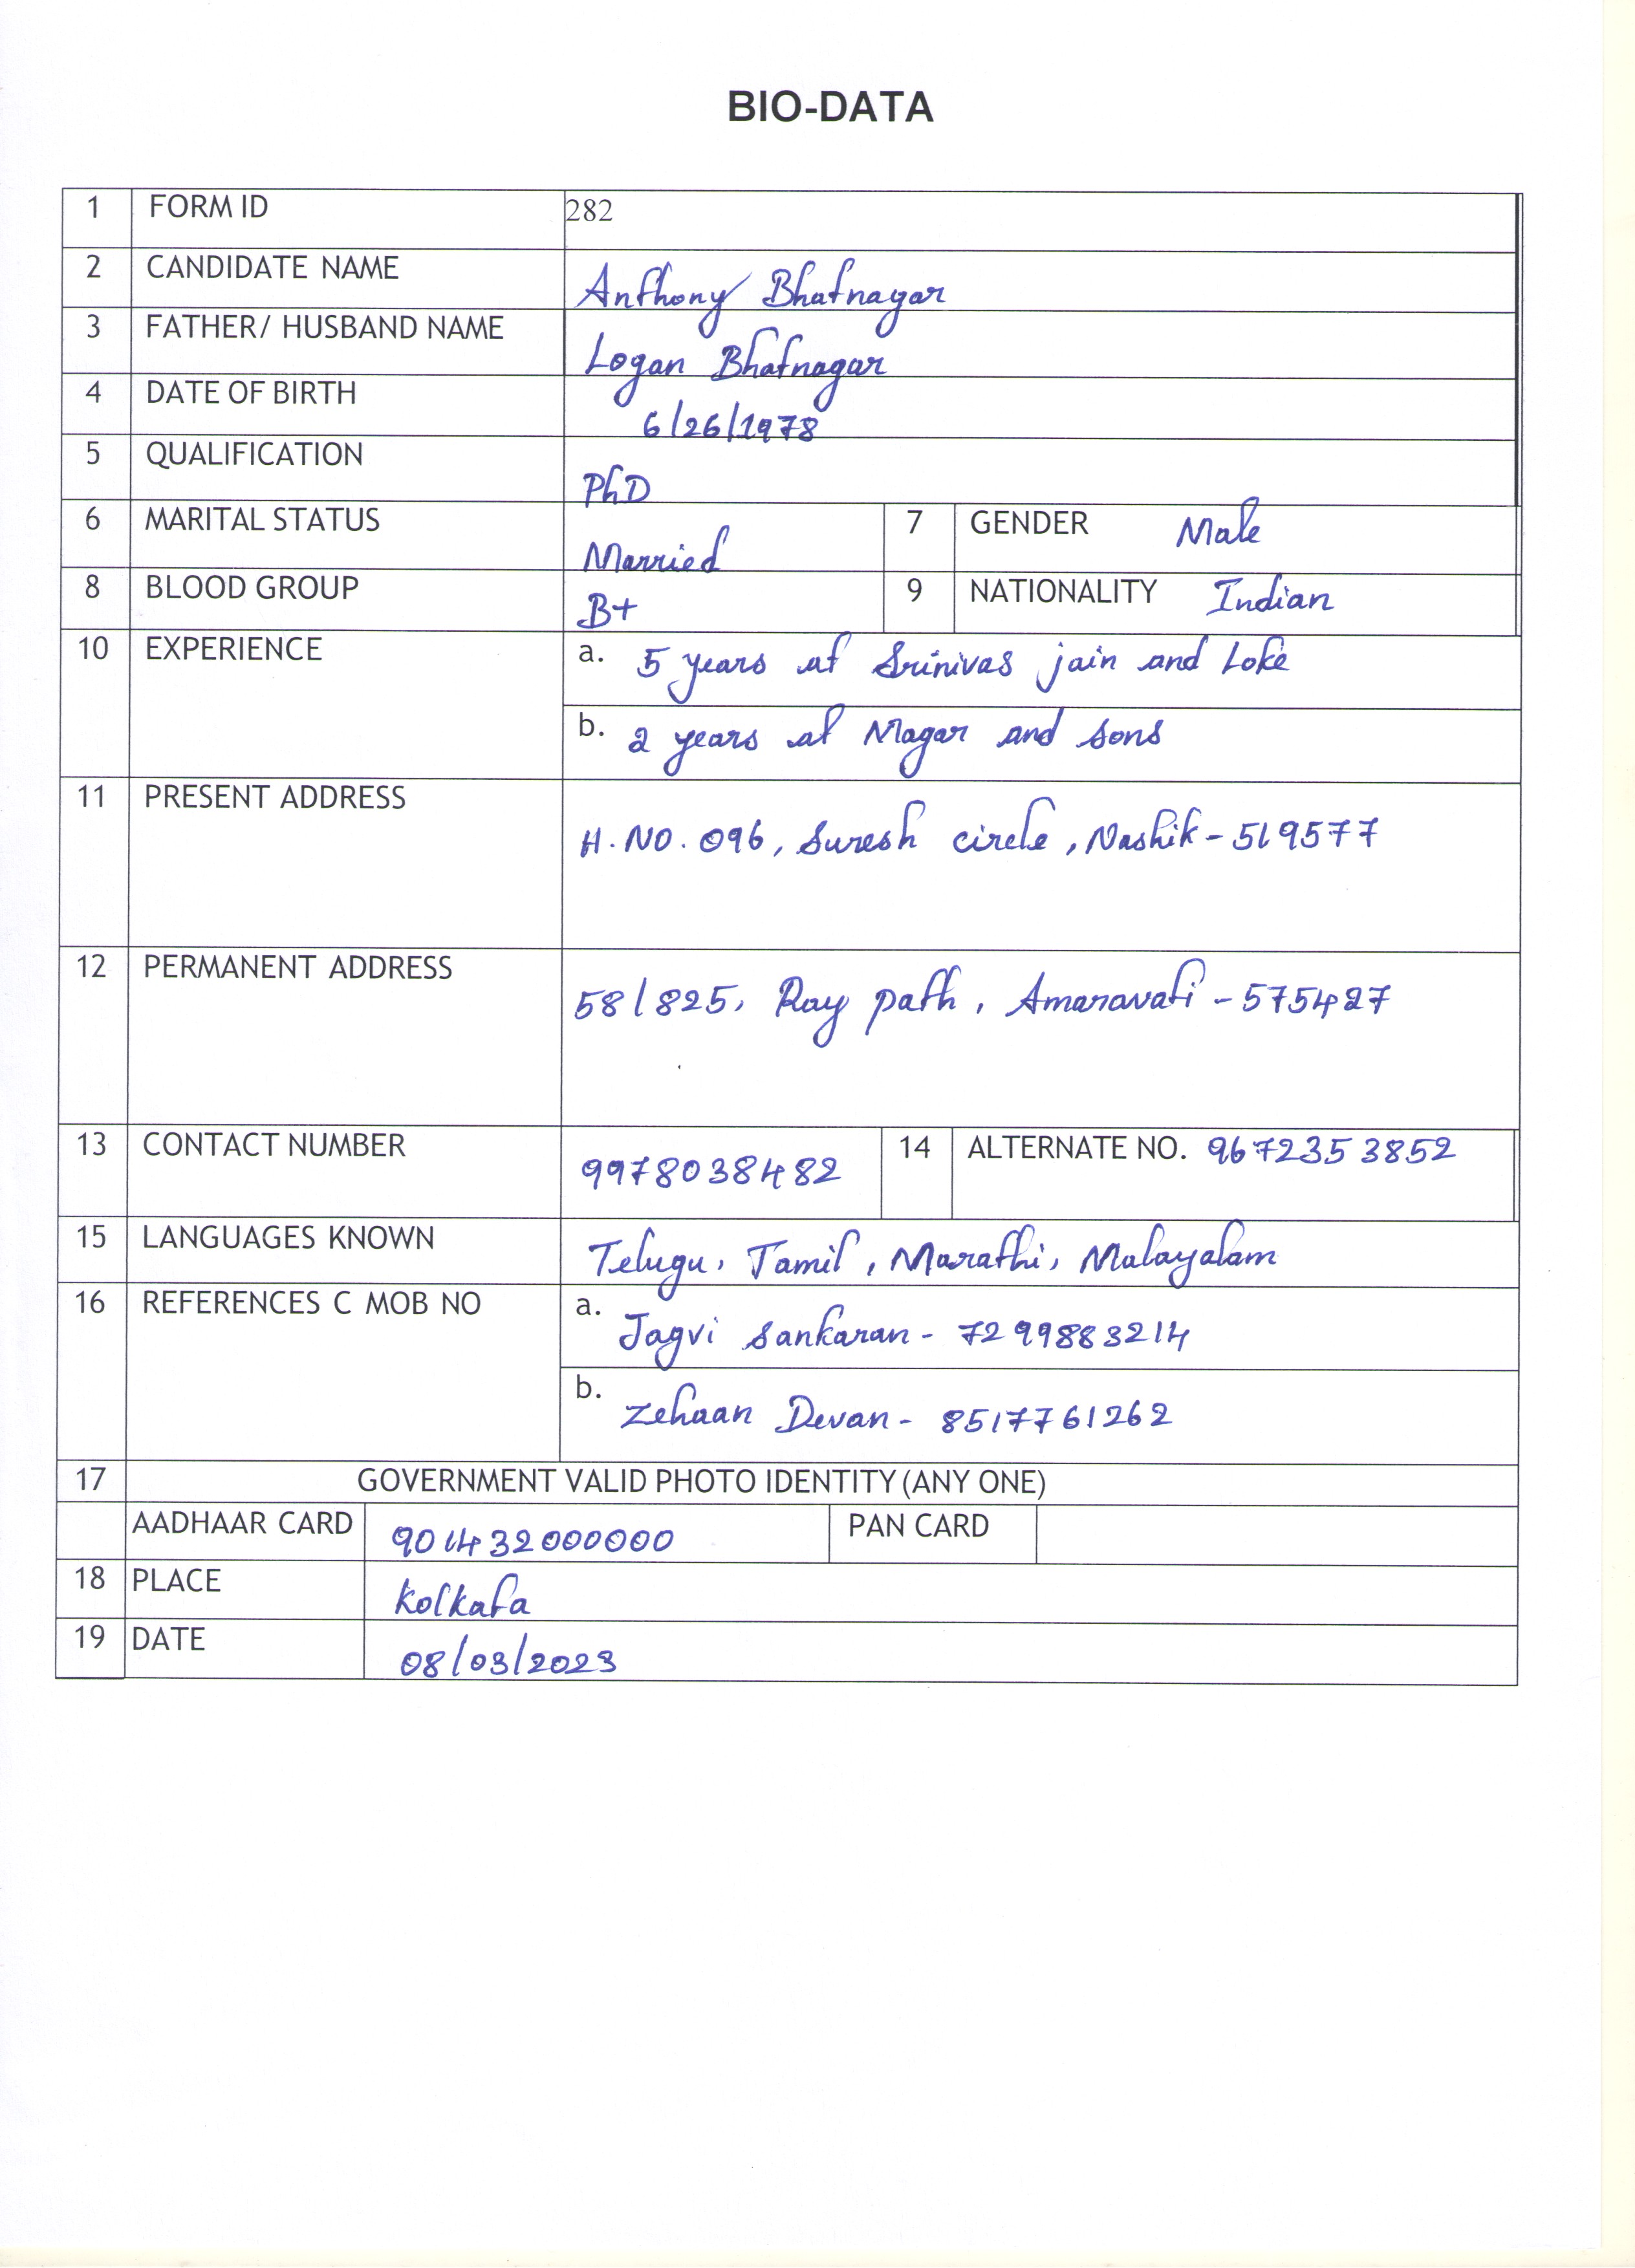 BIO-DATA
1 FORM ID 282
2 CANDIDATE NAME Anthony Bhatnagar
3 FATHER/ HUSBAND NAME Logan Bhatnagar
4 DATE OF BIRTH 6/26/1978
5 QUALIFICATION PhD
6 MARITAL STATUS Married 7 GENDER Male
8 BLOOD GROUP B+ 9 NATIONALITY Indian
10 EXPERIENCE a. 5 years at Srinivas jain and Loke
b. 2 years at Magar and sons
11 PRESENT ADDRESS H.NO. 096, Suresh circle, Nashik - 519577
12 PERMANENT ADDRESS 58/825, Ray path, Amaravati - 575427
13 CONTACT NUMBER 9978038482 14 ALTERNATE NO. 9672353852
15 LANGUAGES KNOWN Telugu, Tamil, Marathi, Malayalam
16 REFERENCES C MOB NO a. Jagvi Sankaran - 7299883214
b. Zehaan Devan - 8517761262
17 GOVERNMENT VALID PHOTO IDENTITY (ANY ONE)
AADHAAR CARD 901432000000 PAN CARD
18 PLACE Kolkata
19 DATE 08/03/2023